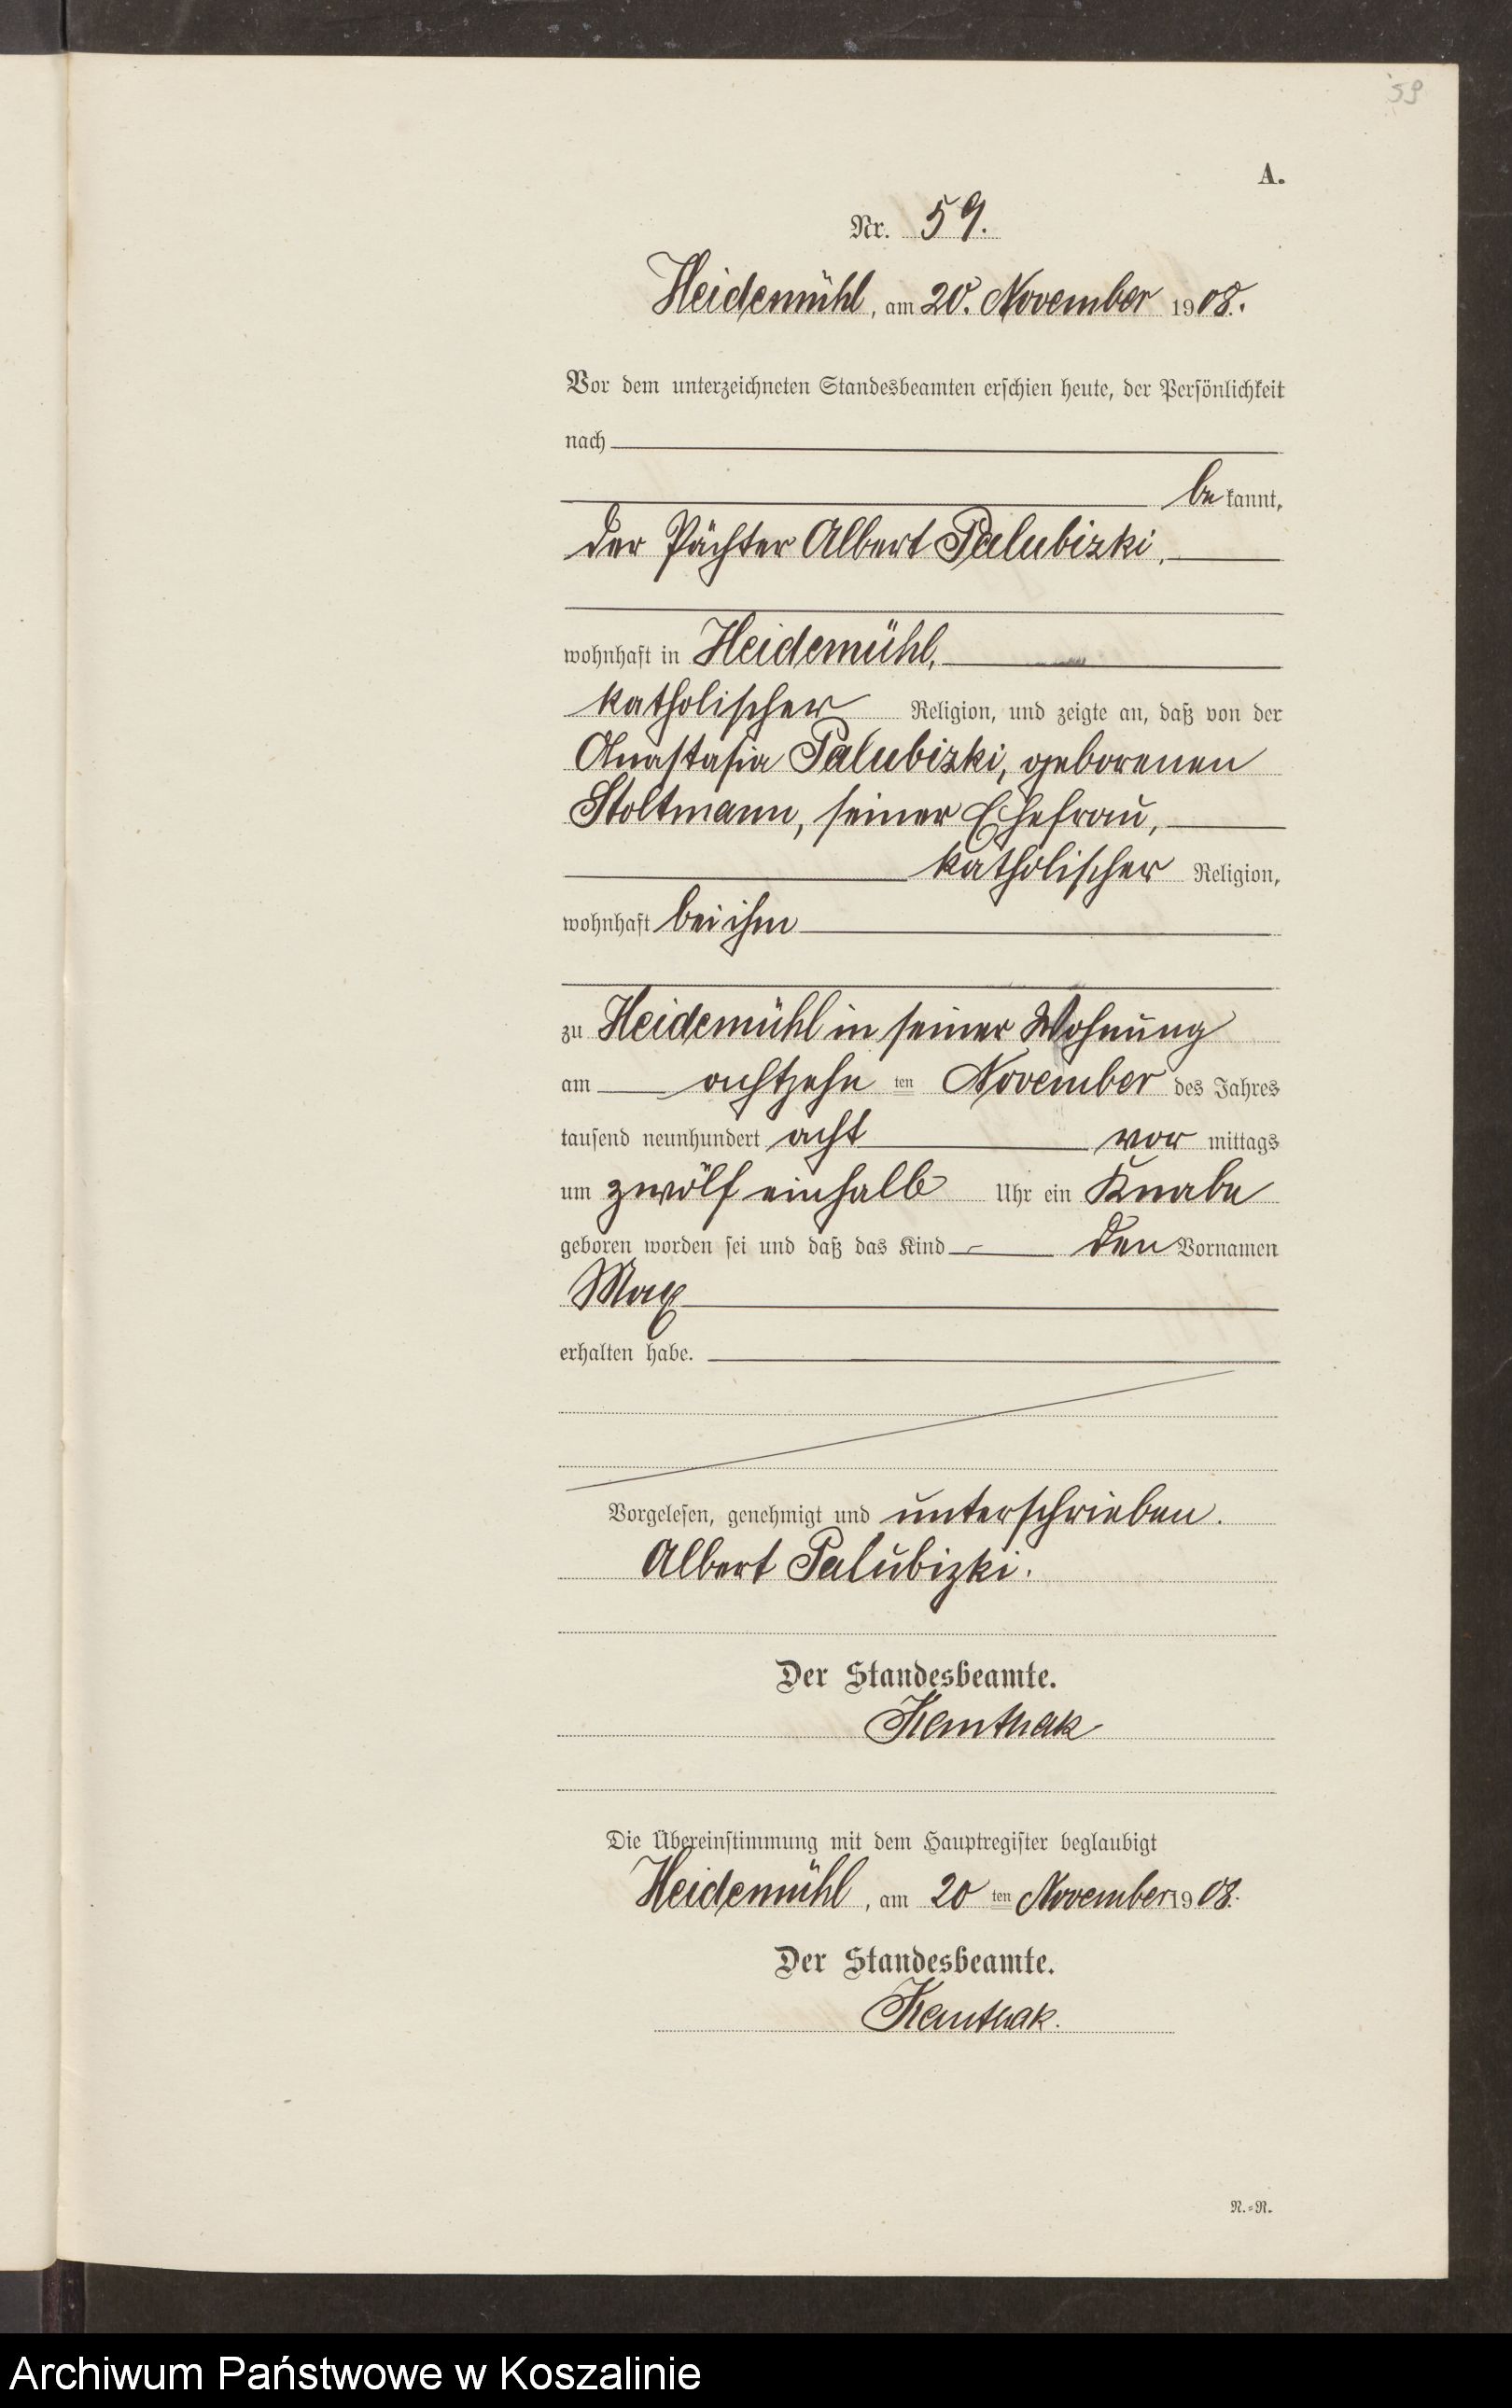 59
A.
Nr. 59.
Heidemühl, am 20. November 1908.
Vor dem unterzeichneten Standesbeamten erschien heute, der Persönlichkeit
nach
bekannt,
der Pächter Albert Palubizki,
wohnhaft in Heidemühl,
katholischer Religion, und zeigte an, daß von der
Anastasia Palubizki, geborenen
Stoltmann, seiner Ehefrau,
katholischer Religion,
wohnhaft bei ihm
zu Heidemühl in seiner Wohnung
am achtzehn ten November des Jahres
tausend neunhundert acht vor mittags
um zwölf einhalb Uhr ein Knabe
geboren worden sei und daß das Kind den Vornamen
Max
erhalten habe.
Vorgelesen, genehmigt und unterschrieben.
Albert Palubizki.
Der Standesbeamte.
Die Übereinstimmung mit dem Hauptregister beglaubigt
Heidemühl, am 20 ten November 1908.
Der Standesbeamte.
N.=R.
Archiwum Państwowe w Koszalinie